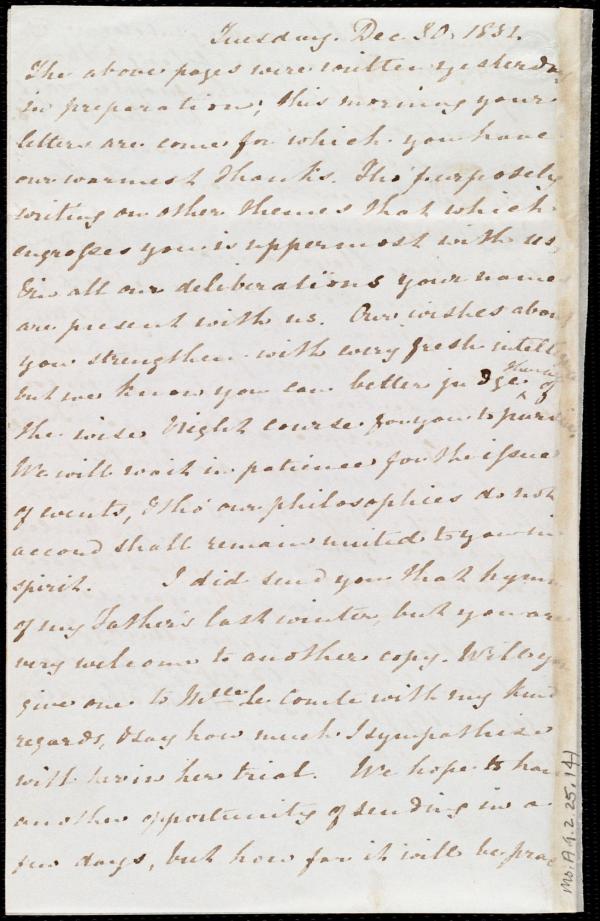 Tuesday. Dec 30. 1851.
The above pages were written yesterday
in preparation; this morning your
letters are come for which you have
our warmest thanks. Tho' purposely
writing on other themes that which
engrosses you is uppermost with us,
& in all our deliberations your names
are present with us. Our wishes about
you strengthen with every fresh intellig
but we know you can better judge than we of
the wise & right course for you to pursue.
We will wait in patience for the issue
of events, & tho' our philosophies do not
accord shall remain united to you in
spirit. I did send you that hymn
of my Father's last winter, but you are
very welcome to another copy. Will you
give one to Mlle Le Comte with my kind
regards, & say how much I sympathise
with her in her trial. We hope to have
another opportunity of sending in a
few days, but how far it will be prac
Ms. A. 9. 2. 25, 14)